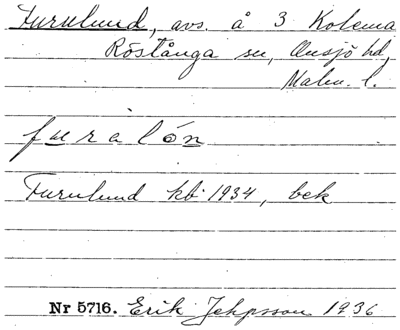 Furulund, avs. å 3 Kolema
Röstånga sn, Onsjö hd,
Malm. l.
furalón
Furulund kbr 1934, bek
Nr 5716. Erik Jeppsson 1936